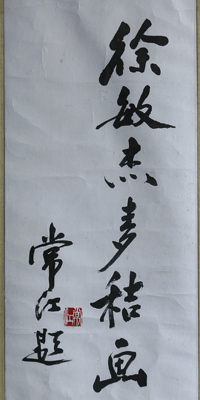 徐敏杰麦秸画
常江题